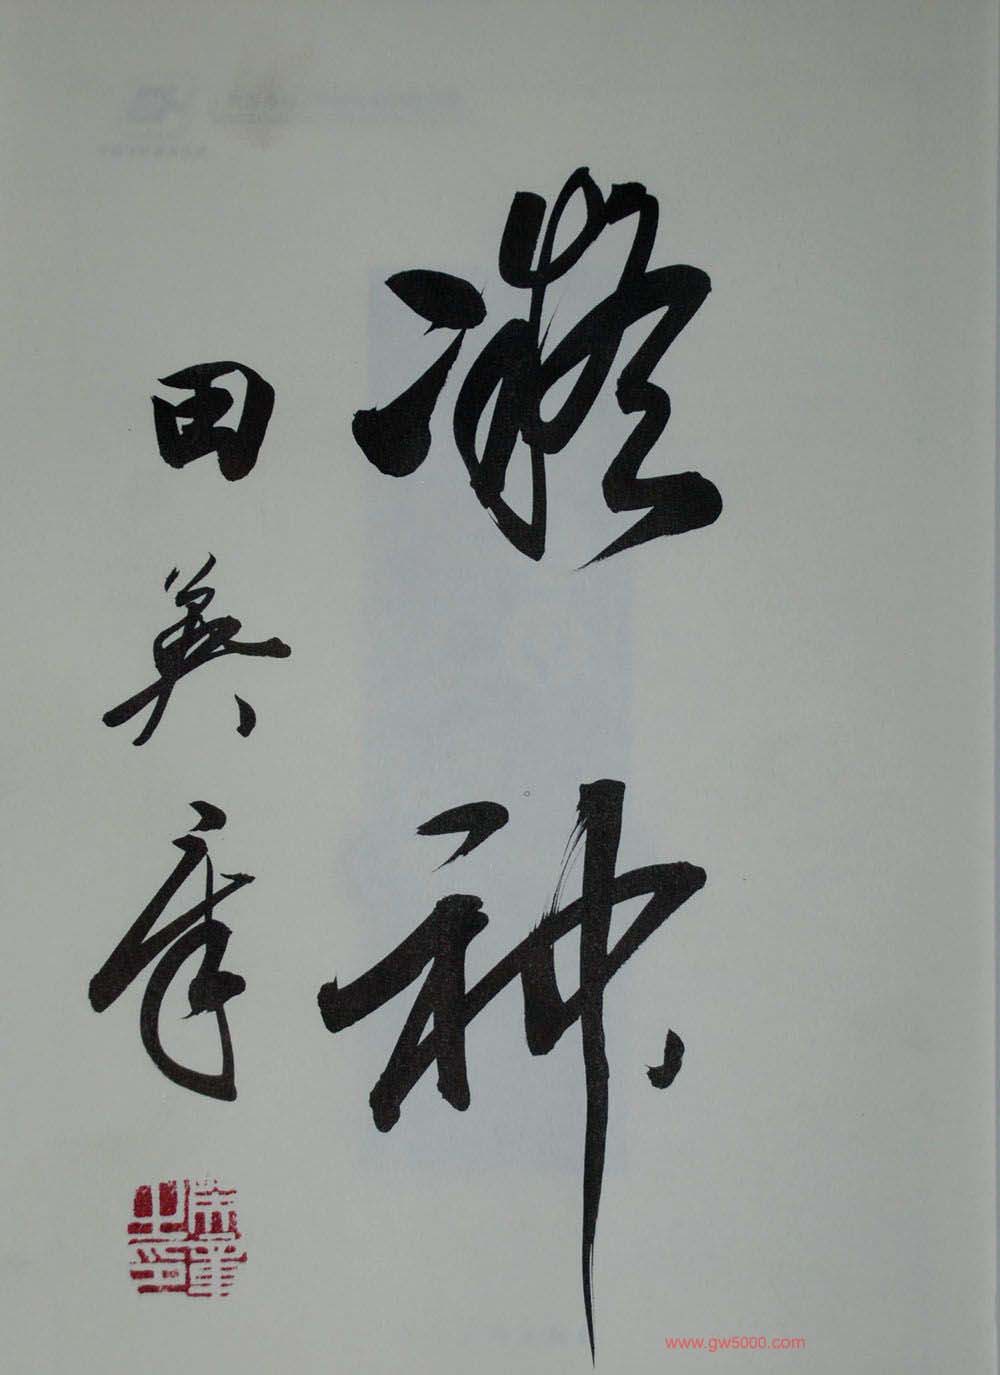 凝神
田英章
www.gw5000.com